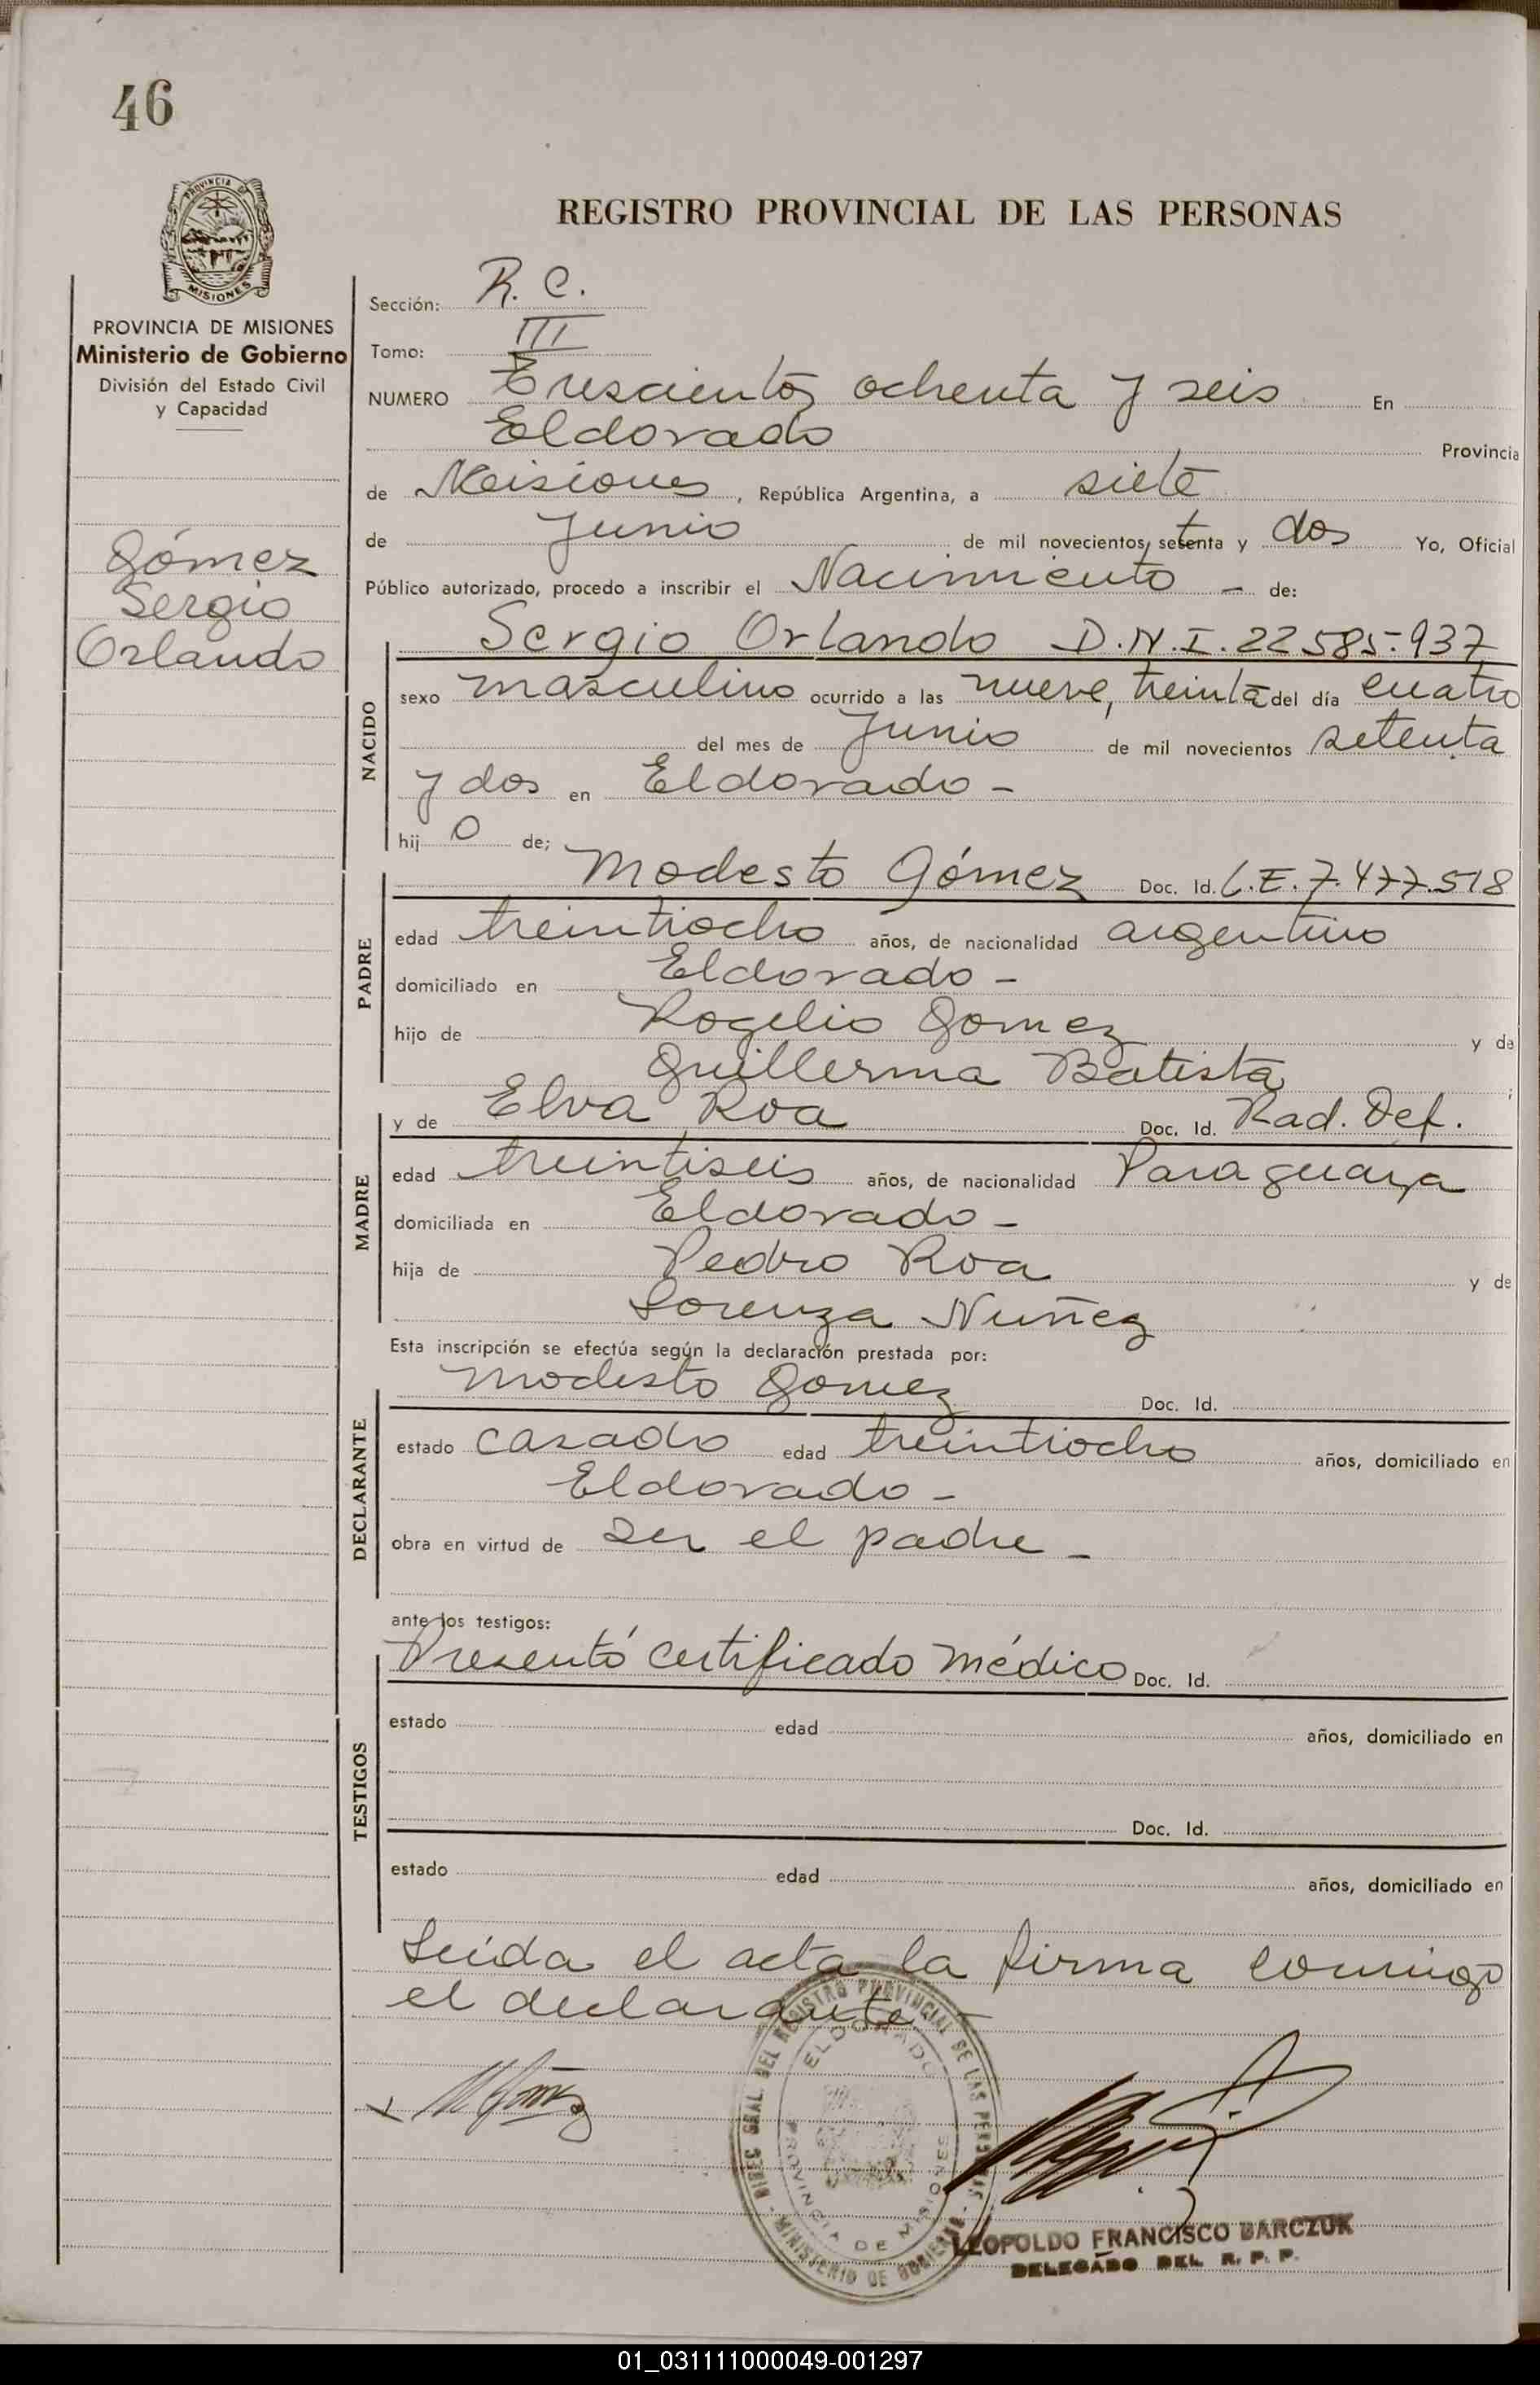 46
PROVINCIA DE MISIONES
REGISTRO PROVINCIAL DE LAS PERSONAS
PROVINCIA DE MISIONES
Ministerio de Gobierno
División del Estado Civil
y Capacidad
Gómez
Sergio
Orlando
Sección: R. C.
Tomo: III
NUMERO Trescientos ochenta y seis En
Eldorado Provincia
de Misiones, República Argentina, a siete
de Junio de mil novecientos setenta y dos Yo, Oficial
Público autorizado, procedo a inscribir el Nacimiento - de:
NACIDO
Sergio Orlando D.N.I. 22.585.937
sexo masculino ocurrido a las nueve, treinta del día cuatro
del mes de Junio de mil novecientos setenta
y dos en Eldorado -
hij o de;
PADRE
Modesto Gómez Doc. Id. L.E. 7.477.518
edad treintiocho años, de nacionalidad argentino
domiciliado en Eldorado -
hijo de Rogelio Gomez y de
Guillerma Batista ;
MADRE
y de Elva Roa Doc. Id. Rad. Def.
edad treintiseis años, de nacionalidad Paraguaya
domiciliada en Eldorado -
hija de Pedro Roa y de
Lorenza Nuñez
Esta inscripción se efectúa según la declaración prestada por:
DECLARANTE
Modesto Gomez Doc. Id.
estado casado edad treintiocho años, domiciliado en
Eldorado -
obra en virtud de ser el padre -
ante los testigos:
TESTIGOS
Presentó certificado médico Doc. Id.
estado edad años, domiciliado en
Doc. Id.
estado edad años, domiciliado en
Leída el acta la firma conmigo
el declarante -
DIREC GRAL. DEL REGISTRO PROVINCIAL DE LAS PERSONAS - MINISTERIO DE GOBIERNO -
ELDORADO
PROVINCIA DE MISIONES
M Gómez
LEOPOLDO FRANCISCO BARCZUK
DELEGADO DEL R. P. P.
01_031111000049-001297